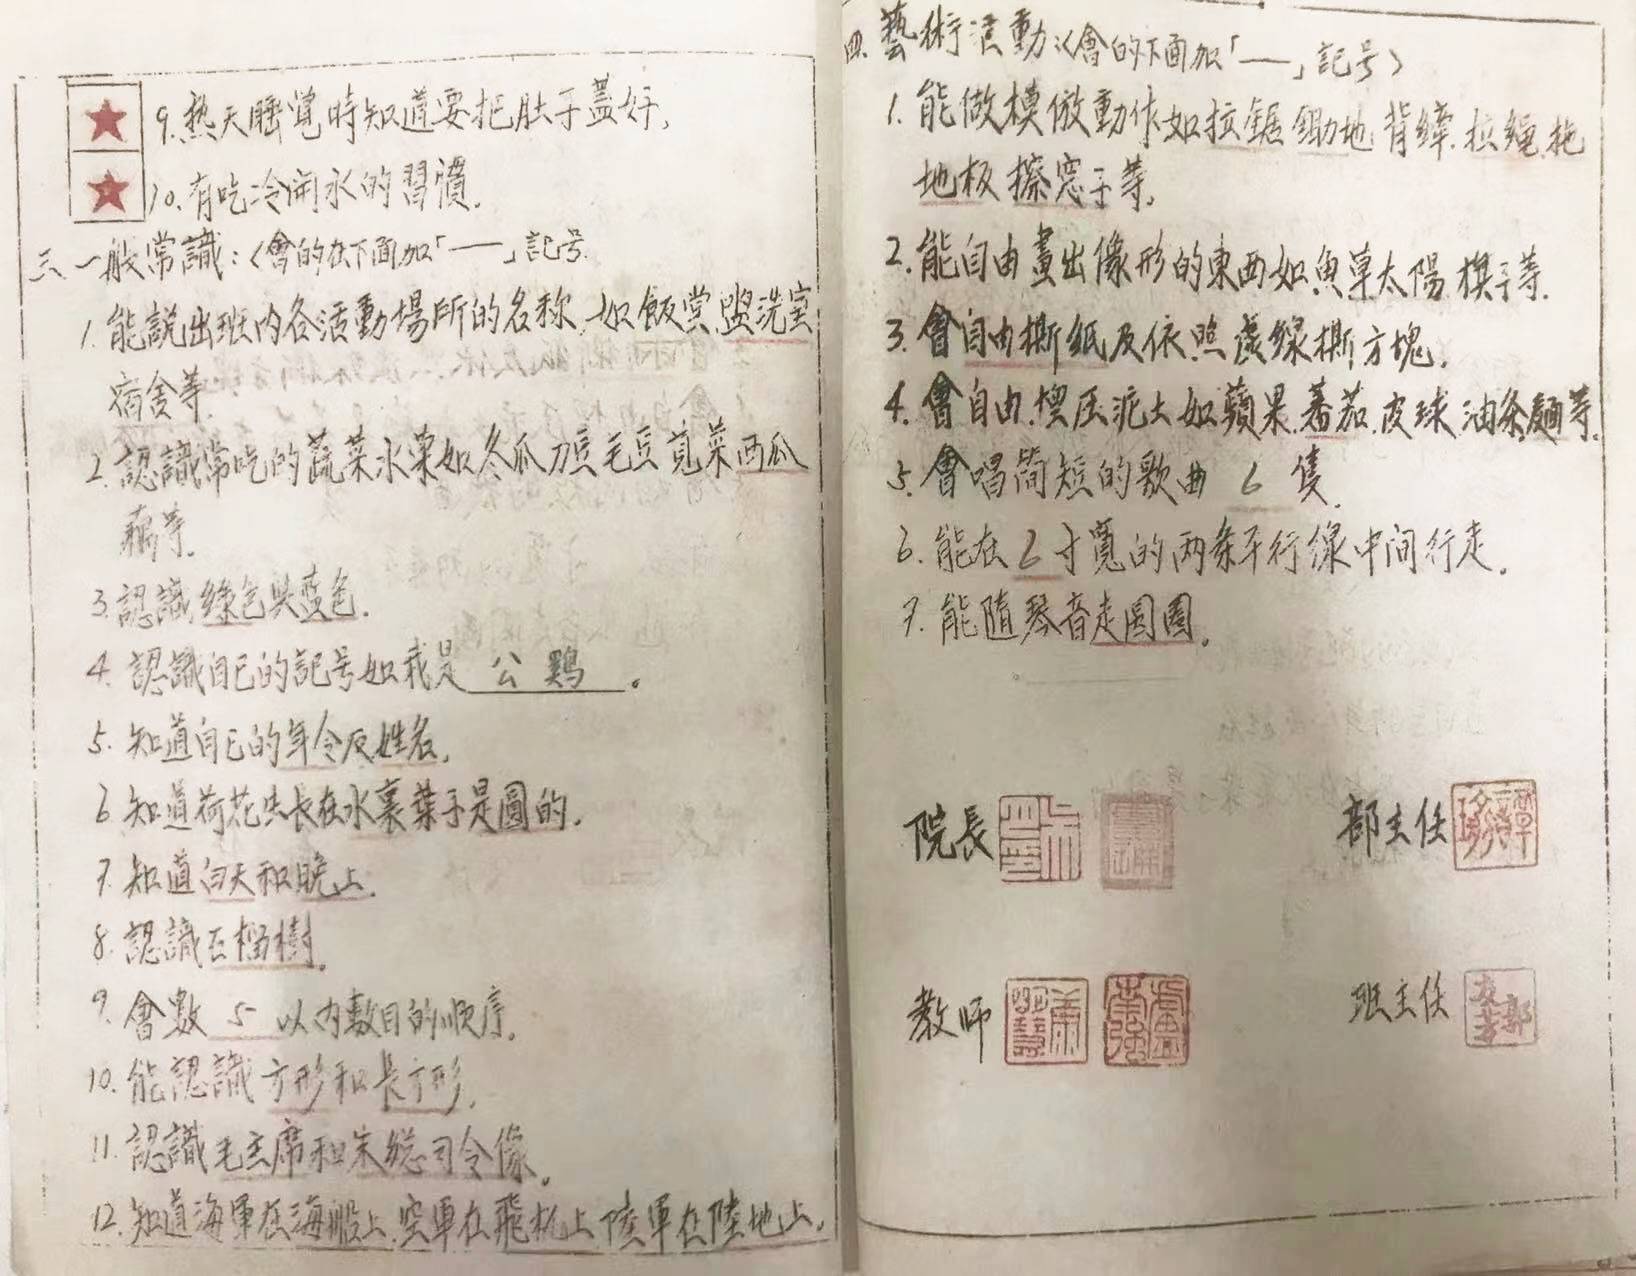 9.热天睡覺時知道要把肚子蓋好,
10.有吃冷開水的習慣.
三、一般常識:〈會的在下面加「——」記号.
1.能説出班内各活動場所的名称,如飯堂,盥洗室
宿舍等.
2.認識常吃的蔬菜水菓如冬瓜刀豆毛豆莧菜西瓜
藕等.
3.認識綠色與蓝色.
4.認識自已的記号如我是 公鷄 。
5.知道自已的年令及姓名.
6.知道荷花生長在水裏葉子是圓的.
7.知道白天和晚上.
8.認識石榴樹.
9.會數 5 以内數目的順序.
10.能認識方形和長方形.
11.認識毛主席和朱總司令像.
12.知道海軍在海船上.空軍在飛机上.陸軍在陸地上.
四.藝術活動:〈會的下面加「——」記号〉
1.能做模倣動作如拉鋸鋤地,背縴.拉繩.拖
地板擦窓子等.
2.能自由畫出像形的東西如魚草太陽棋子等.
3.會自由撕紙及依照虚綫撕方塊.
4.會自由.埋压泥土如蘋果.蕃茄.皮球.油条麵等.
5.會唱简短的歌曲 6 隻.
6.能在6寸寬的两条平行線中间行走.
7.能随琴音走圓圈.
院長
部主任
教師
班主任